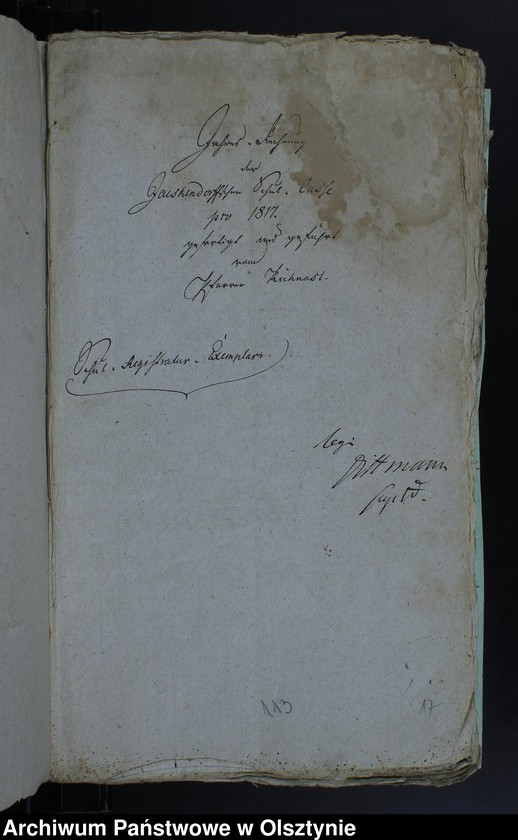 Jahres-Rechnung
der
Jaeskendorffschen Schul-Casse
pro 1817.
gefertigt und geführt
vom
Pfarrer Kühnast.
Schul-Registratur-Exemplar.
legi
Dittmann
113
17
Archiwum Państwowe w Olsztynie